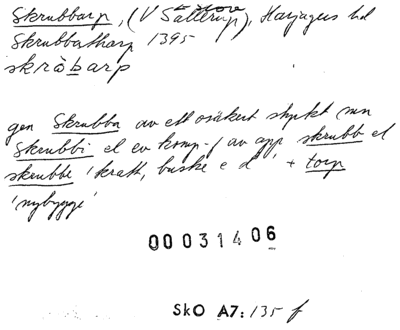 Skrubbarp, (V Sallerup), Harjagers hd
Skrubbatharp 1395
skrȧbarp
gen Skrubba av ett osäkert styrkt mn
Skrubbi el ev komp-f av app skrubb el
skrubbe 'kratt, buske e d' + torp
'nybygge'
00031406
SkO A7: 135 f